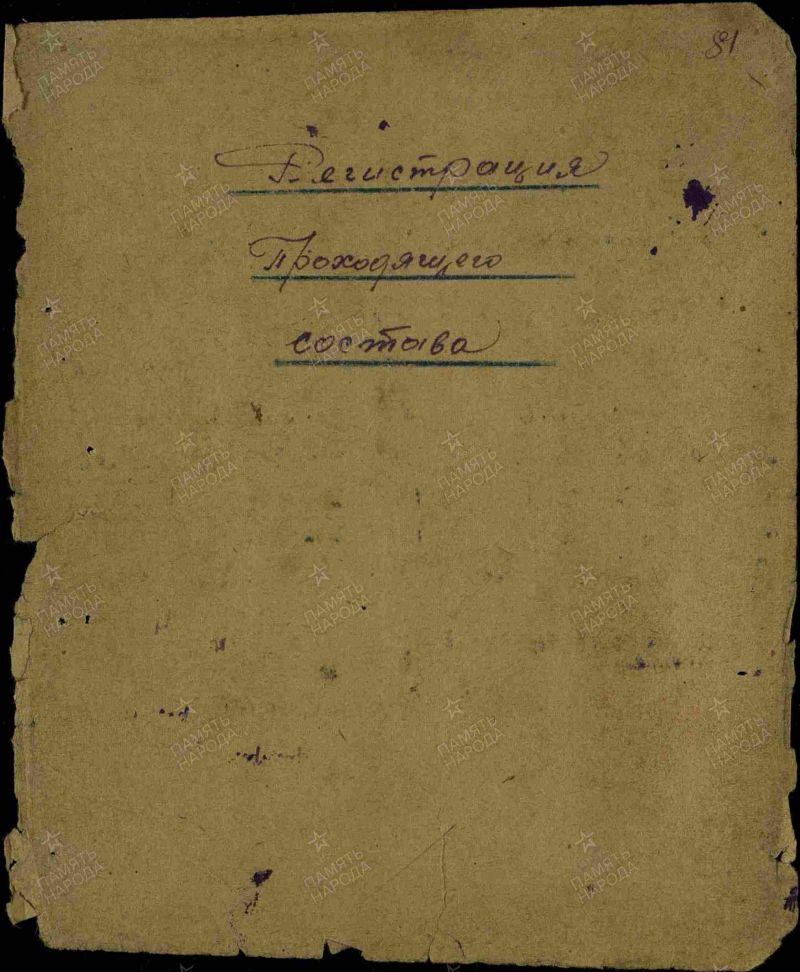 81
Регистрация
Проходящего
состава
ПАМЯТЬ
НАРОДА